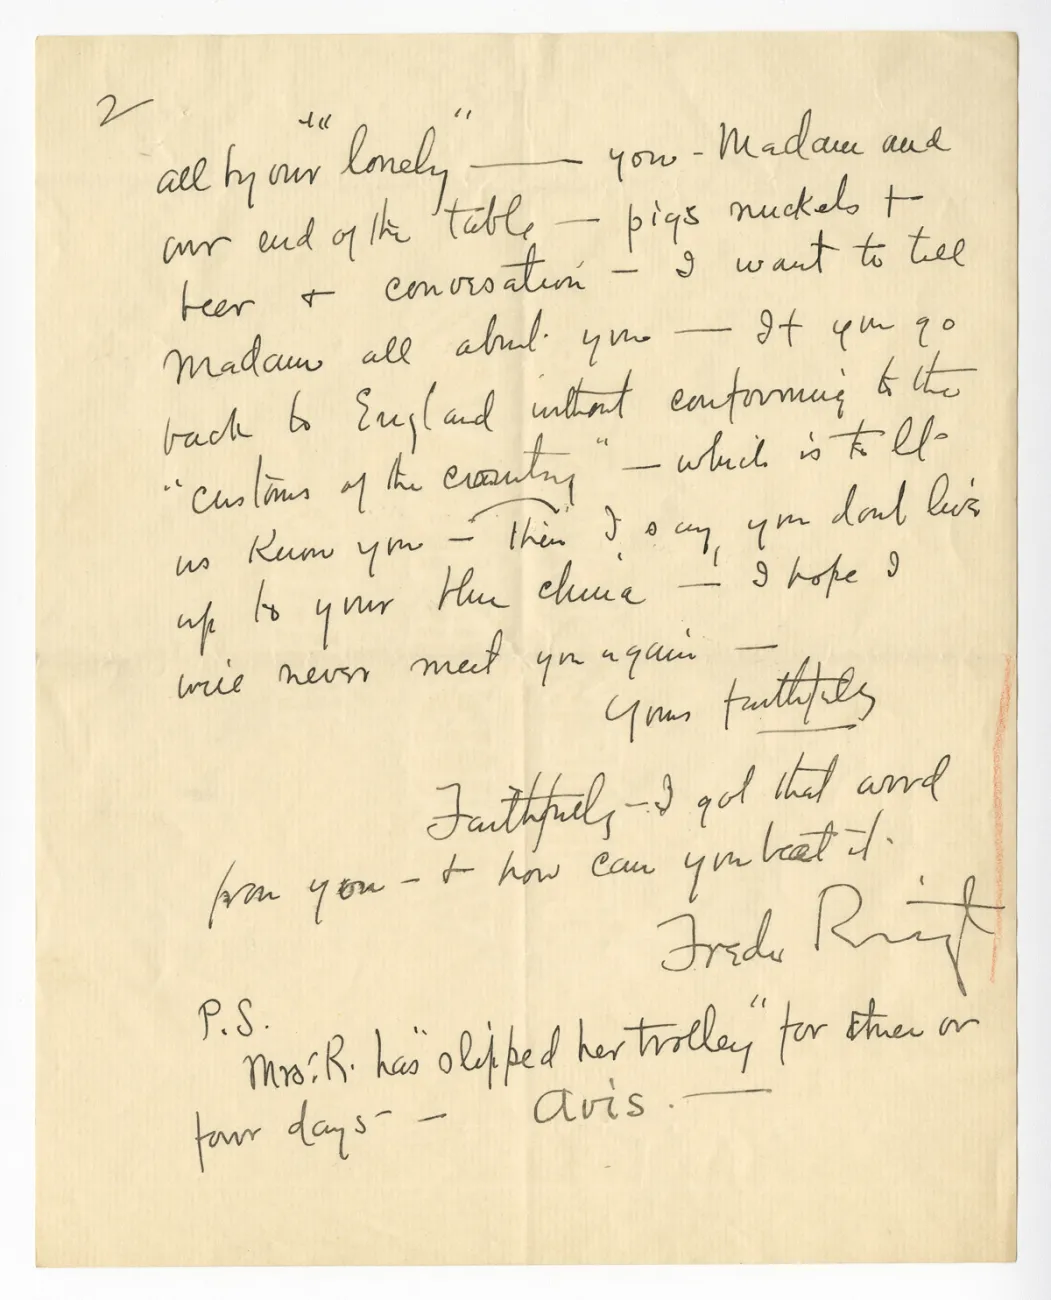 2
all by our "lonely" — you - Madam and
our end of the table — pigs nuckels +
beer + conversation — I want to tell
Madam all about you — If you go
back to England without conforming to the
"customs of the country" — which is to let
us know you — then I say, you dont live
up to your blue china — I hope I
will never meet you again —
Yours faithfully
Faithfully — I got that word
from you — + how can you beat it.
Fredr
P.S.
Mrs. R. has "slipped her trolley" for three or
four days — — Avis. —